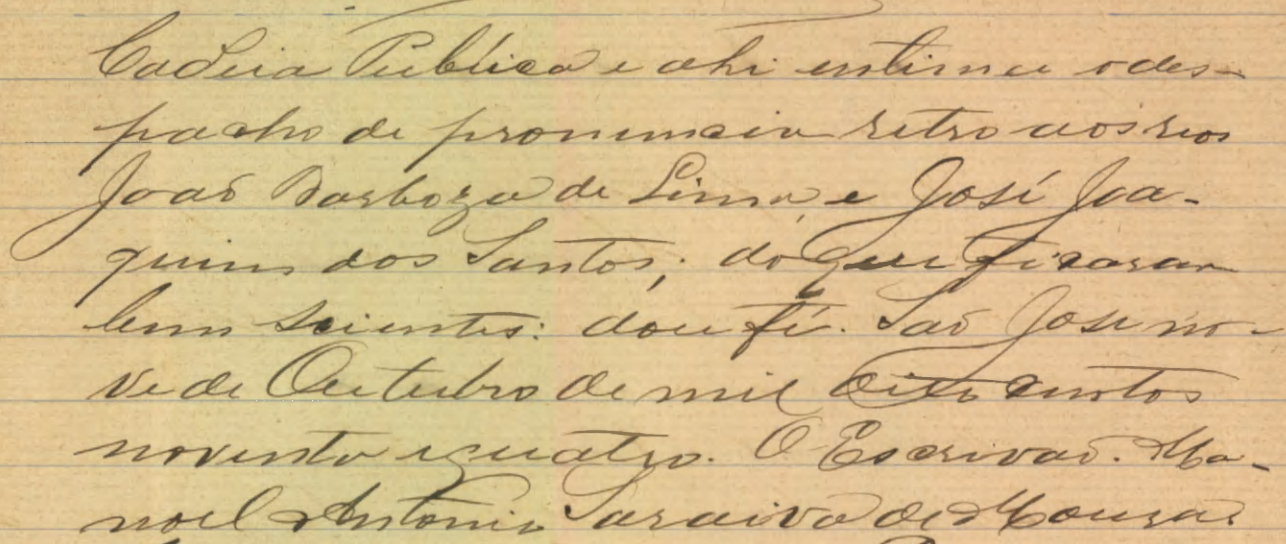 Cadeia Publica e ahi intimei o des-
pacho de pronuncia retro aos reos
João Barboza de Lima e José Joa-
quim dos Santos; do que ficaram
bem scientes: dou fé. São José no-
ve de Outubro de mil oito centos
noventa e quatro. O Escrivão. Ma-
noel Antonio Saraiva de Moura